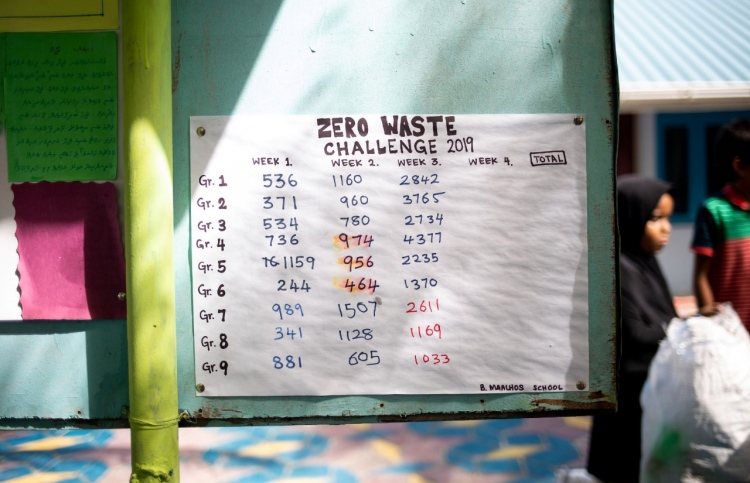 ZERO WASTE
CHALLENGE 2019
WEEK 1. WEEK 2. WEEK 3. WEEK 4. TOTAL
Gr. 1 536 1160 2842
Gr. 2 371 960 3765
Gr. 3 534 780 2734
Gr. 4 736 974 4377
Gr. 5 1159 956 2235
Gr. 6 244 464 1370
Gr. 7 989 1507 2611
Gr. 8 341 1128 1169
Gr. 9 881 605 1033
SCHOOL